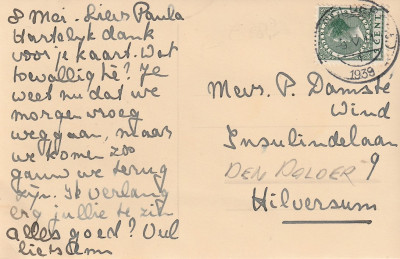 8 Mei. Liefs Paula
Hartelijk dank
voor je kaart. Wat
toevallig hè? Je
weet nu dat we
morgen vroeg
weggaan, maar
we komen zoo
gauw we terug
zijn. Ik verlang
erg jullie te zien
alles goed? Veel
liefs Ann
CENT
1939
Mevr. P. Damsté
Wind
Insulindelaan
9
DEN DOLDER
Hilversum